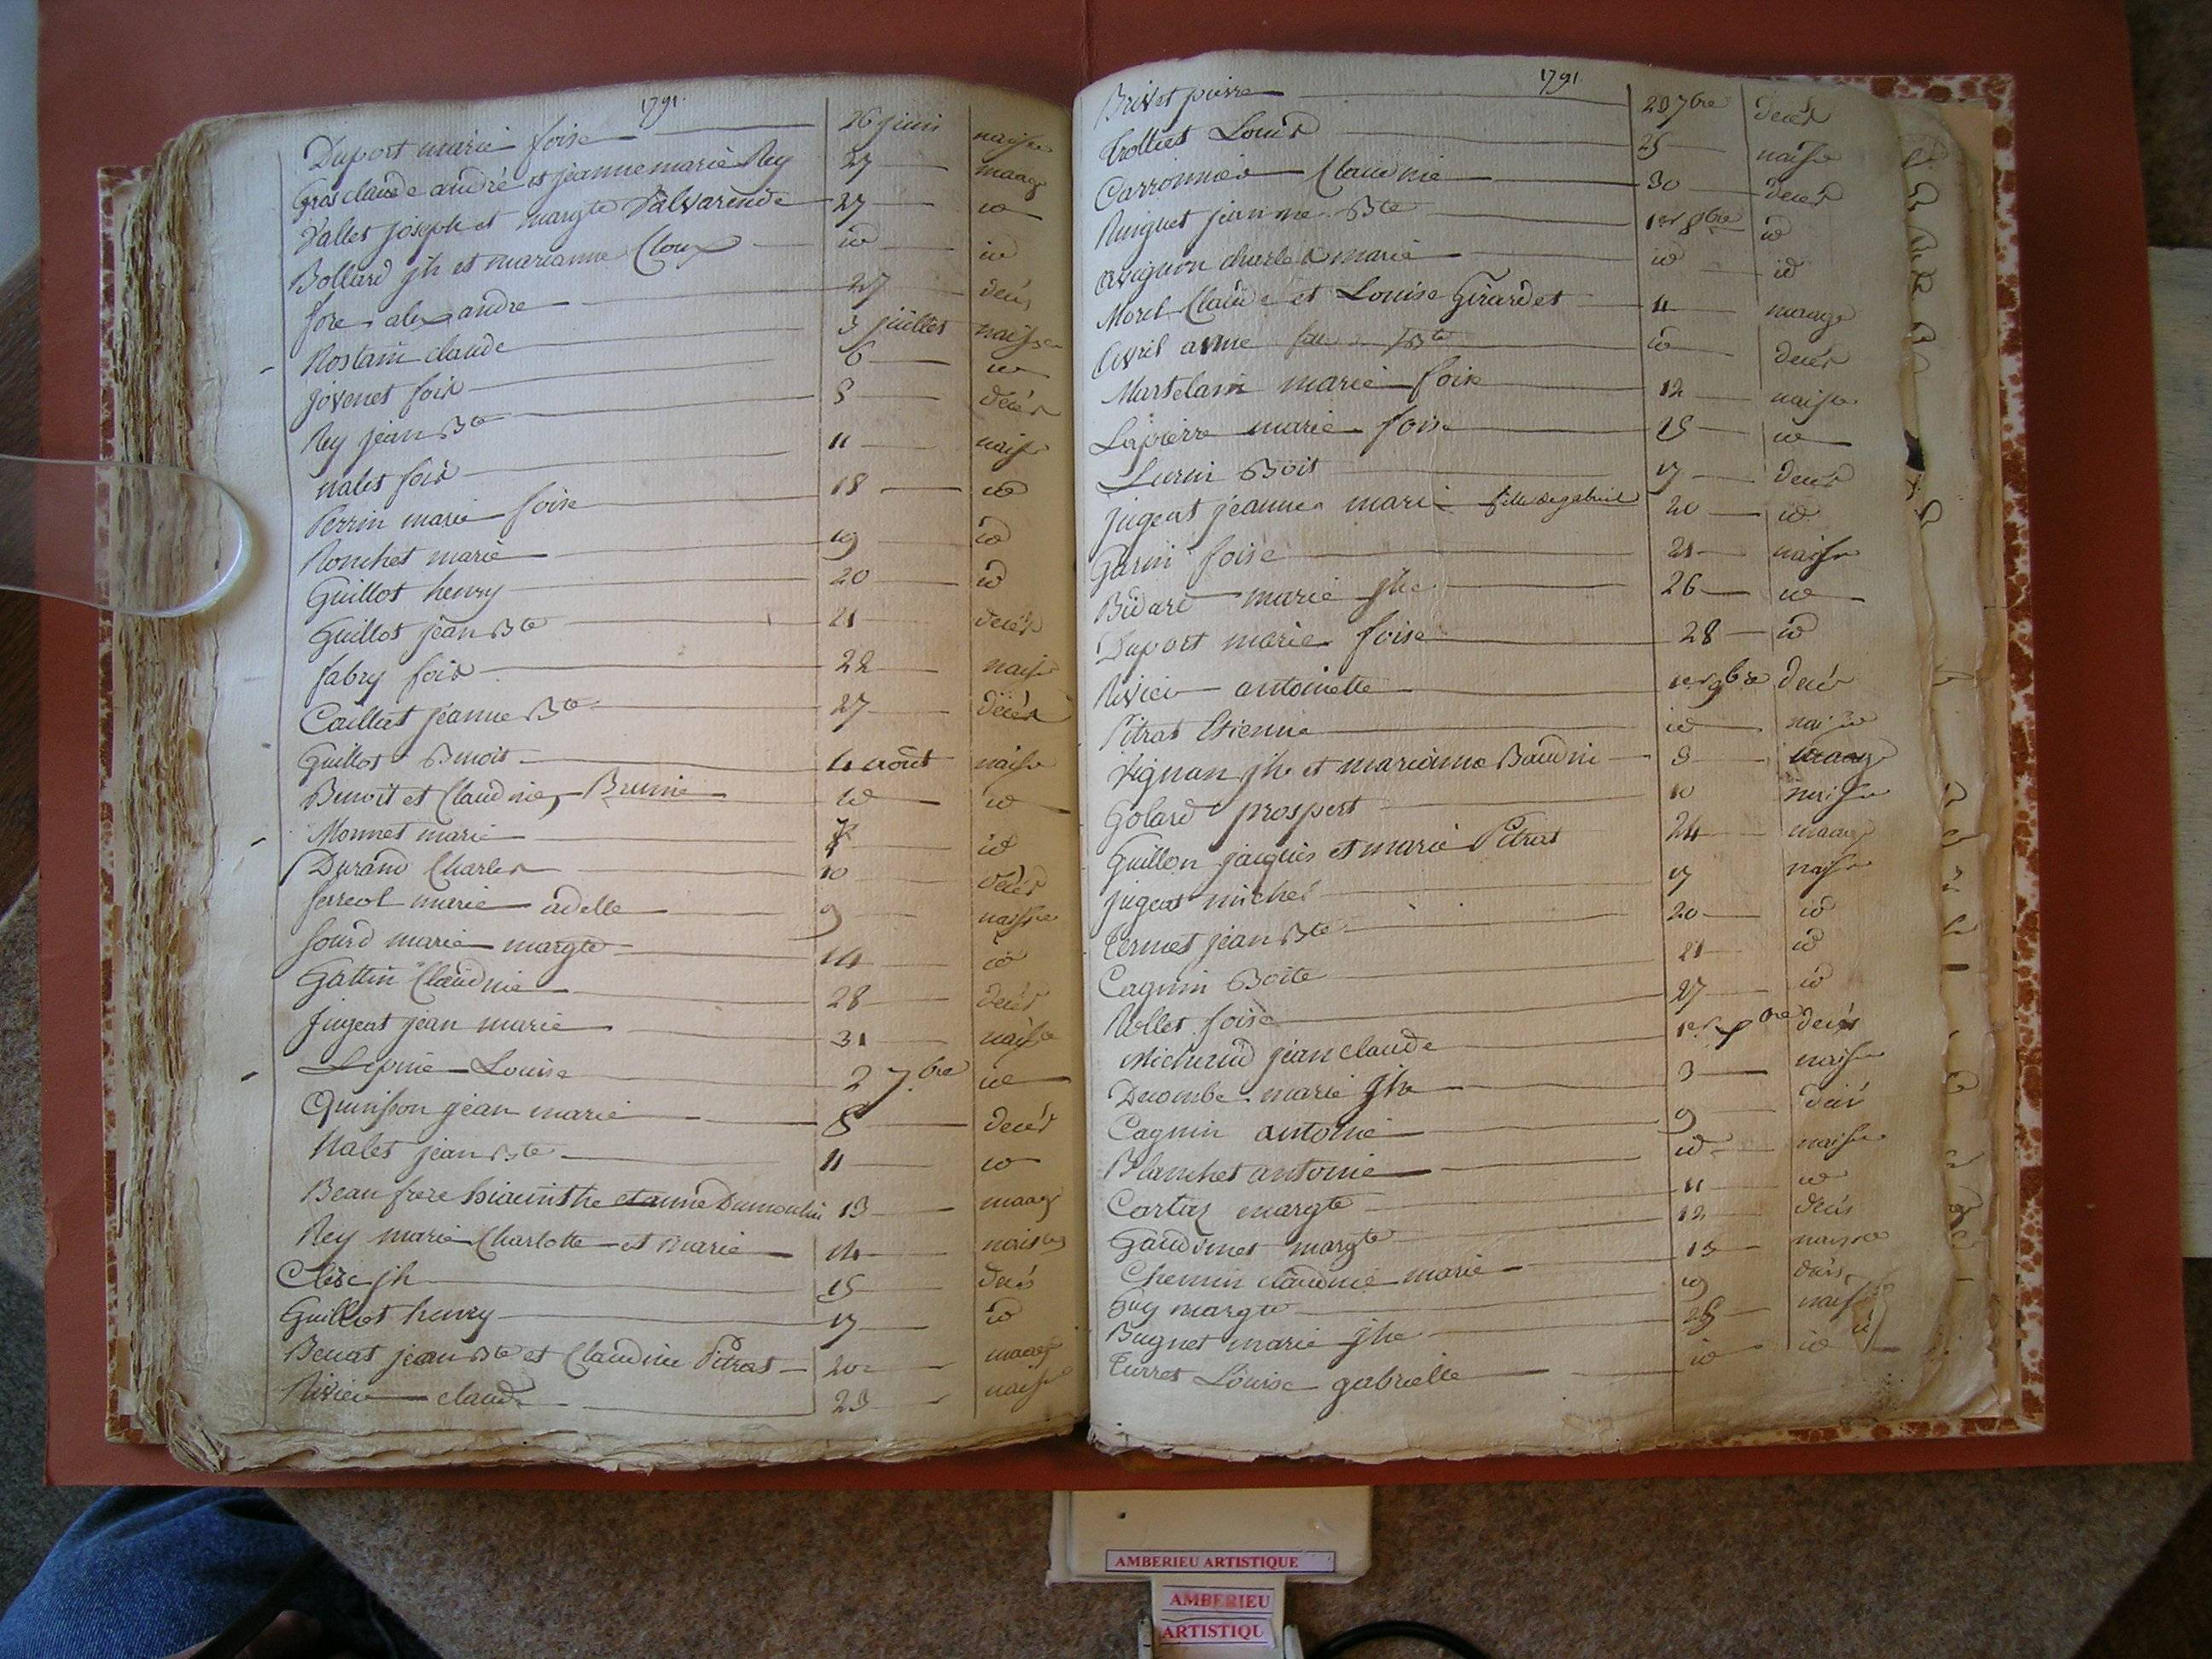 1791.
Duport marie foise 26 juin naisse
Gros claude andré et jeanne marie Rey 27 maage
Vallet joseph et margte Dalvarende 27 id
Bollard jh et marianne Cloux id id
fore alexandre 27 decés
Rostain claude 3 juillet naisse
jovenet fois 6 id
Rey jean Bte 8 decés
nalet fois 11 naisse
Perrin marie foise 18 id
Ronchet marie 19 id
Guillot henry 20 id
Guillot jean Bte 21 decés
fabry fois 22 naisse
Caillat jeanne Bte 27 decés
Guillot Benoit 4 août naisse
Benoit et Claudine, Brunie id id
Monnet marie id
Durand Charles 10 decés
ferreol marie adelle 9 naisse
sourd marie margte 14 id
Gattin Claudine 28 decés
Jugeat jean marie 31 naisse
Lepine Louise 2 7.bre id
Quinsson jean marie 8 decés
Nalet jean Bte 11 id
Beaufrere hiacinthe et anne Dumoulin 13 maage
Rey marie Charlotte et marie 14 naisces
Clerc jh 15 decés
Guillot henry 17 id
Benat jean Bte et Claudine Pitrat 20 maage
Rivier claude 23 naisse
1791
Brivet pierre 23 7bre decés
Trolliet Louis 25 naisse
Carronnier Claudine 30 decés
Ruguet jeanne Bte 1er 8bre id
avignon charle marie id id
Morel Claude et Louise Girardet 4 maage
Avril anne id decés
Martelain marie foise 12 naisse
Lapierre marie foise 15 id
Lurin Boit 17 decés
jugeat jeanne marie fille de gabriel 20 id
Garin foise 21 naisse
Bidard marie jhe 26 id
Duport marie foise 28 id
Rivier antoinette 1er 9bre decés
Pitrat Etienne id naisse
Vignan jh et marianne Baudin 8 maage
Golard prospert 10 naisse
Guillon jacques et marie Pitrat 24 maage
jugeat michel 17 naisse
Termet jean Bte 20 id
Cagnin Boite 21 id
Vollet foise 27 id
Michaud jean claude 1er Xbre decés
Decombe marie jhe 3 naisse
Cagnin antoine 9 decés
Blanchet antoine id naisse
Cartaz margte 11 id
Gaudinet margte 12 decés
Chemin claudine marie 13 naisse
Guy margte 19 decés
Bugnet marie jhe 25 naisse
Turret Louise gabrielle id id
AMBERIEU ARTISTIQUE
AMBERIEU
ARTISTIQU